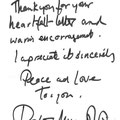 Thank you for your
heartfelt letter and
warm encouragement.
I appreciate it sincerely
Peace and Love
To you.